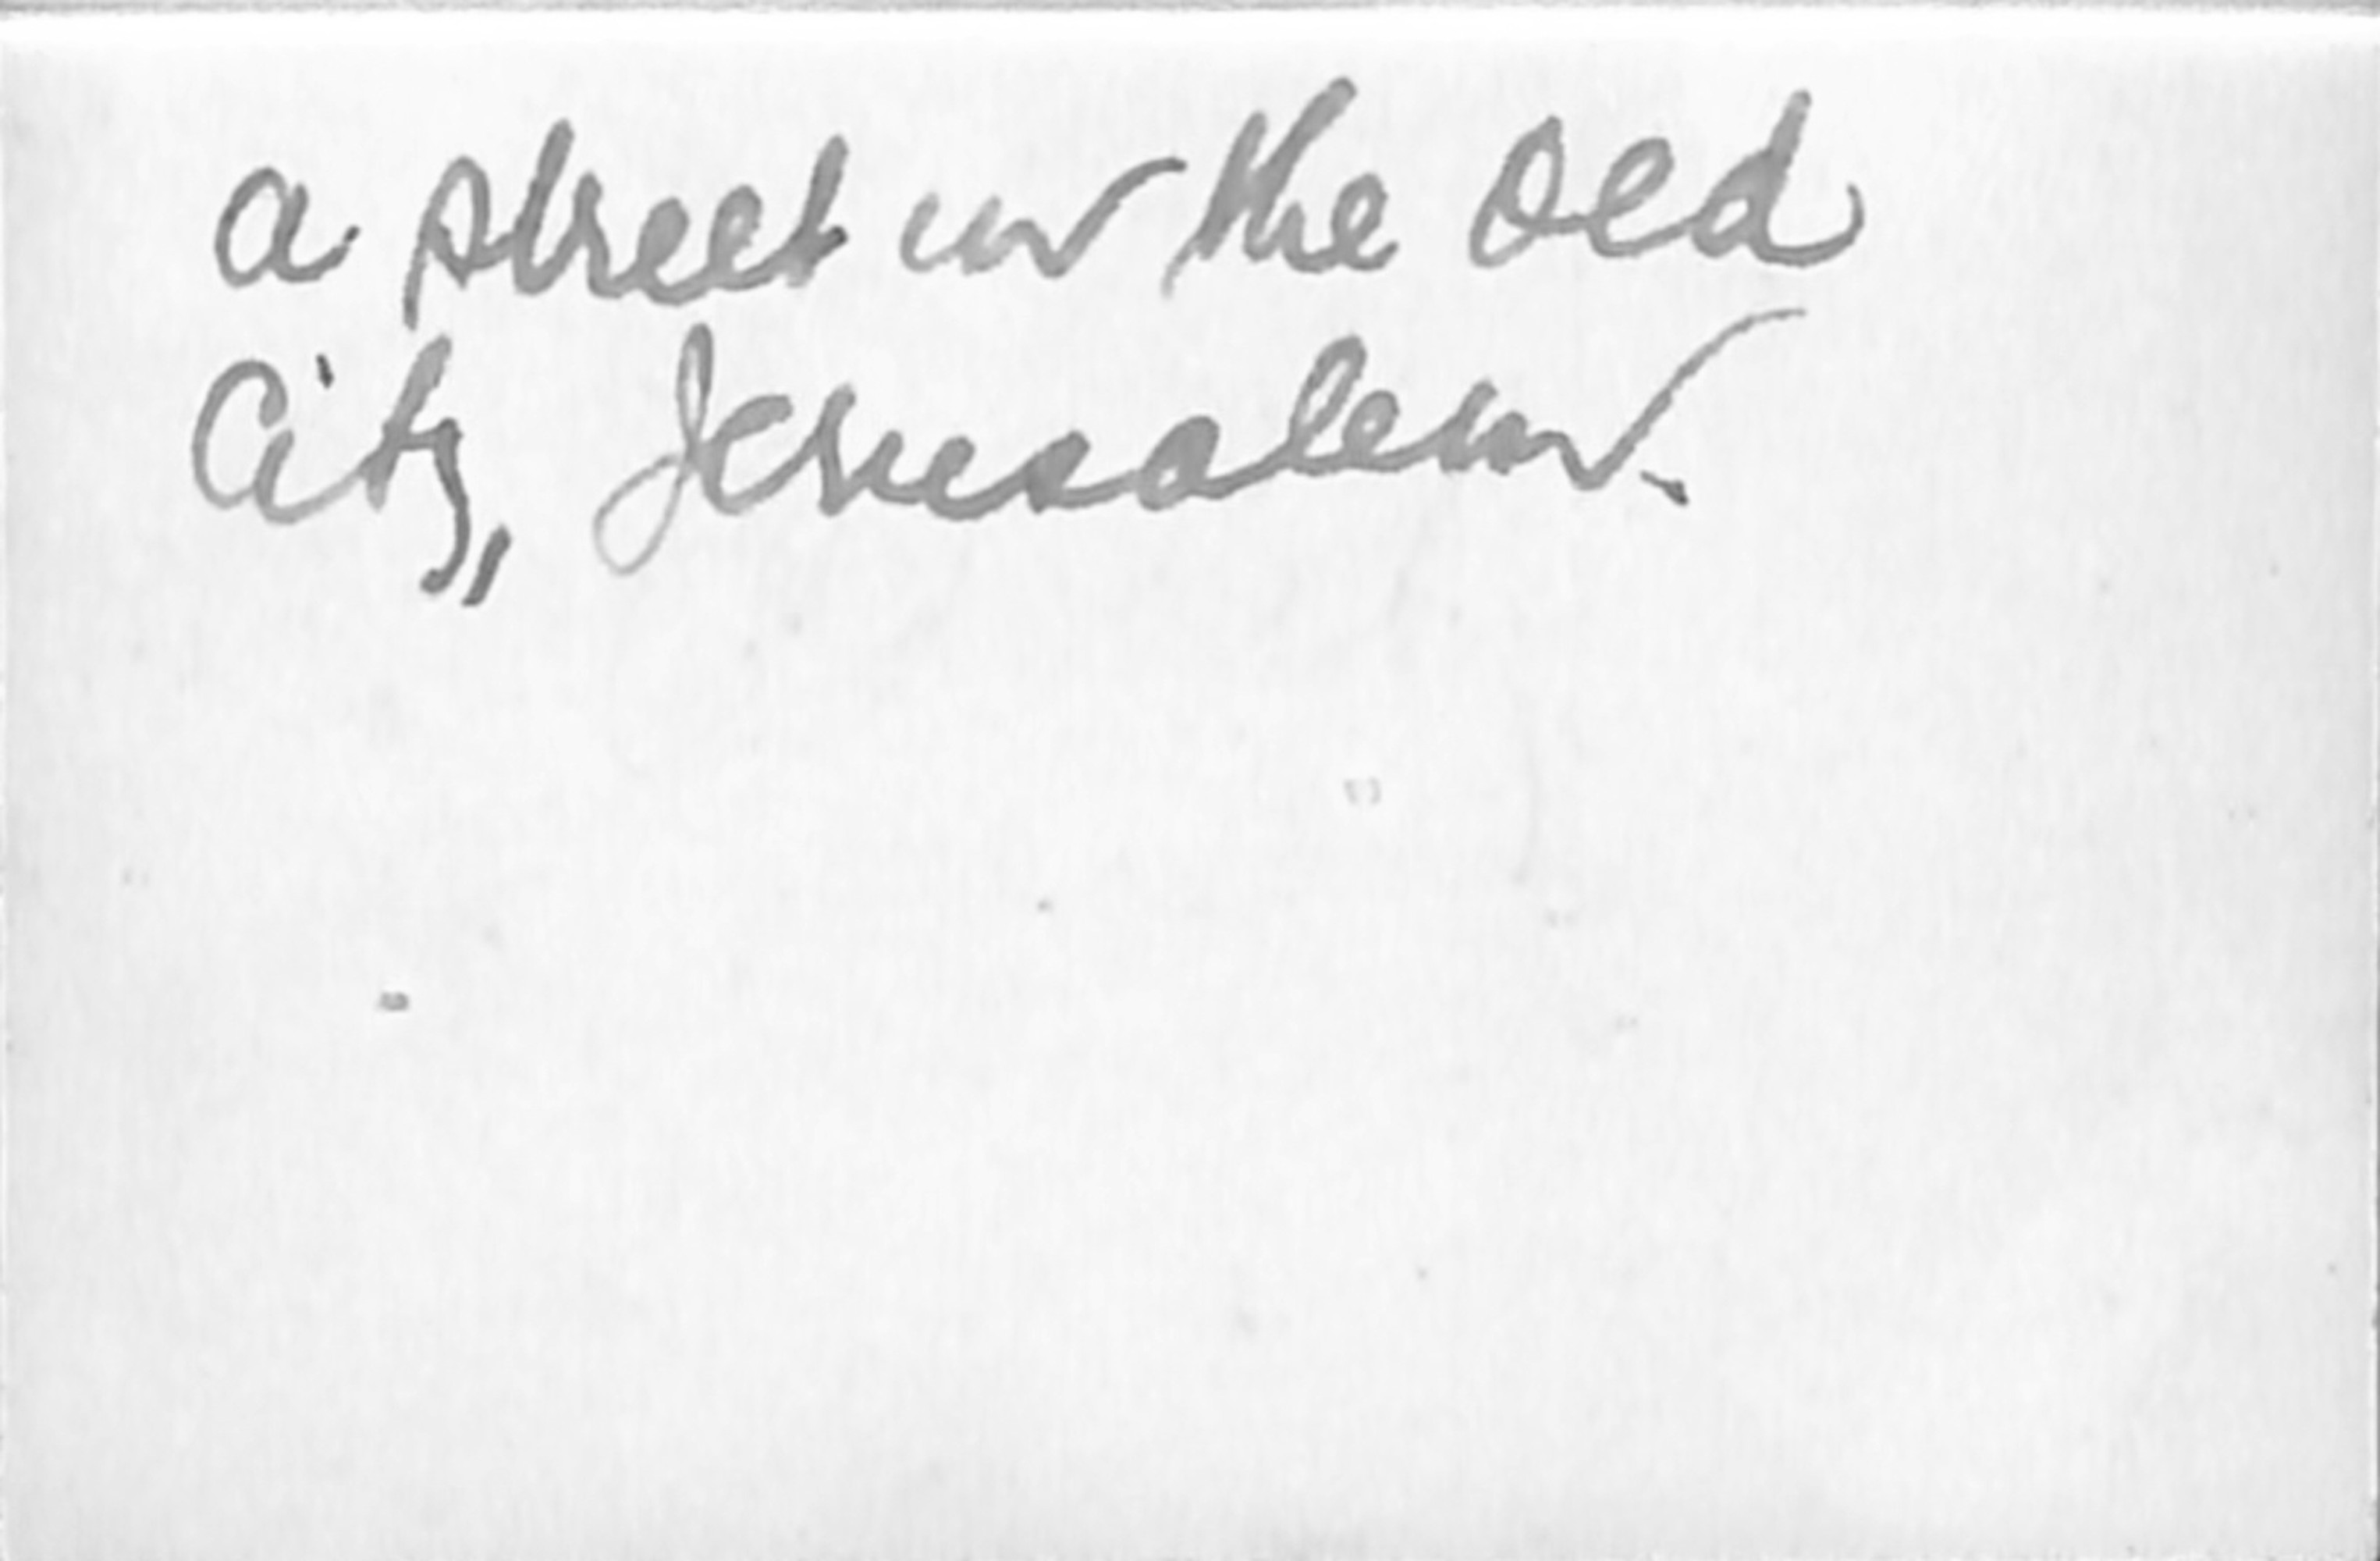 a street in the Old
City, Jerusalem.